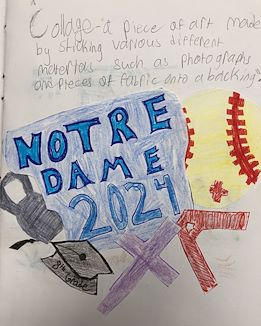 Collage - a piece of art made
by sticking various different
materials such as photographs
and pieces of fabric onto a backing
NOTRE
DAME
2024
8th Grade